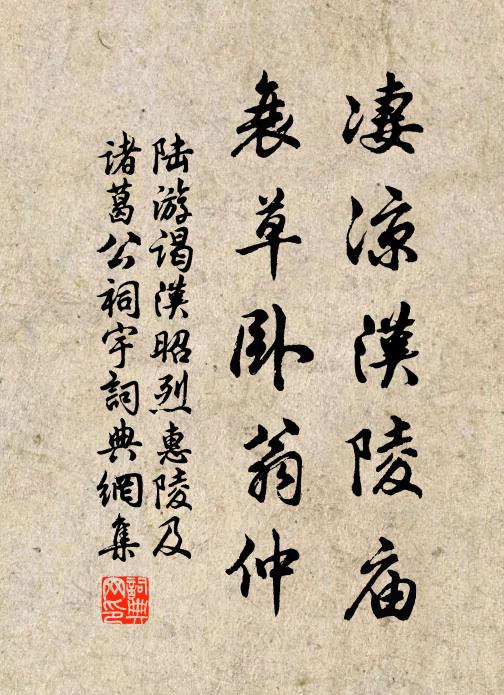 凄凉漢陵庙
衰草卧翁仲
陆游谒漢昭烈惠陵及
诸葛公祠宇词典網集
詞典
网印